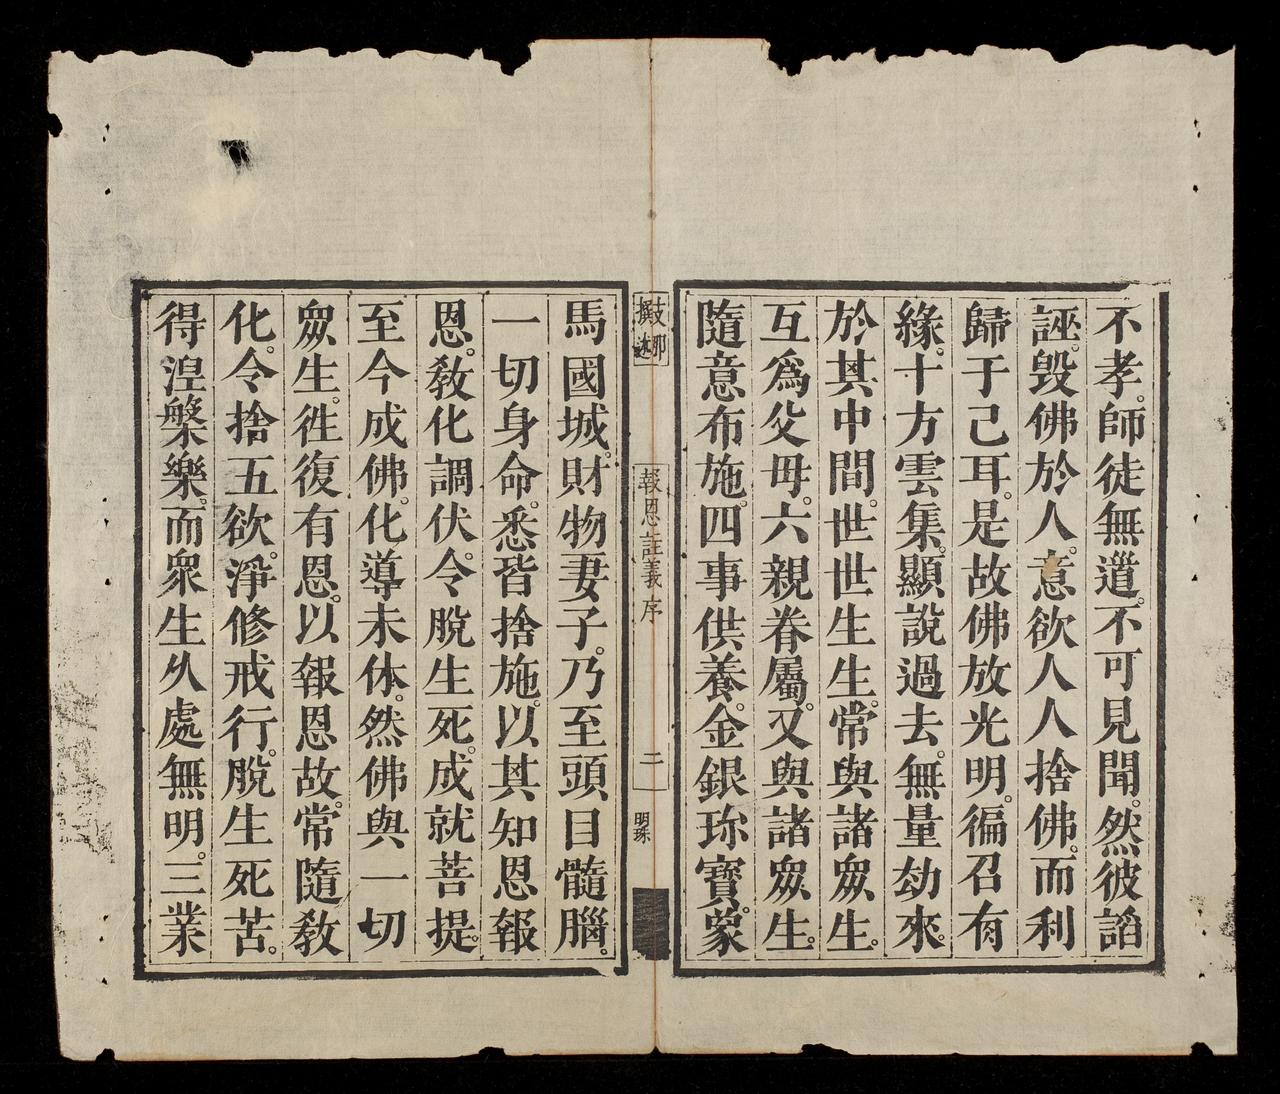 不孝。師徒無邋。不可見聞。然彼謟
誣。毀佛於人。意欲人人捨佛。而利
歸于己耳。是故佛放光明。徧召有
緣。十方雲集。顯說過去。無量劫來。
於其中間。世世生生。常與諸眾生。
互爲父母。六親眷屬。又與諸眾生。
隨意布施。四事供養。金銀珎寶。蒙
報恩註義序
二
明珠
馬國城。財物妻子。乃至頭目髓腦。
一切身命。悉皆捨施。以其知恩報
恩。教化調伏。令脫生死。成就菩提。
至今成佛。化導未休。然佛與一切
眾生。徃復有恩。以報恩故。常隨教
化。令捨五欲。淨修戒行。脫生死苦。
得涅槃樂。而眾生乆處無明。三業